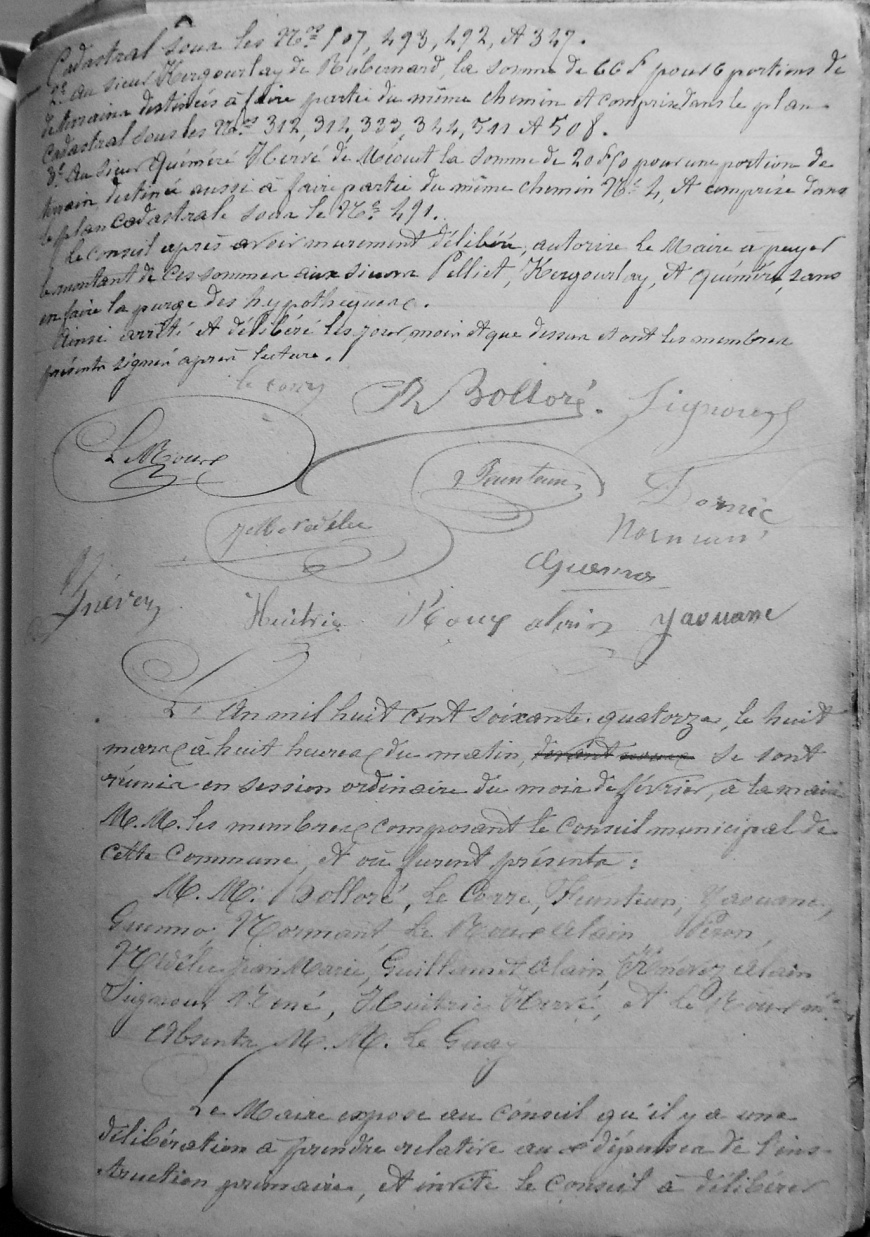 Cadastral sous les Nos 107, 493, 492, et 347.
2o au sieur Kergourlay de Rubernard, la somme de 66f pour 6 portions de
terrains destinées à faire partie du même chemin et comprise dans le plan
Cadastral sous les Nos 312, 314, 323, 344, 511 et 508.
3o Au sieur Quéméré Hervé de la somme de 20f50 pour une portion de
terrain destiné aussi à faire partie du même chemin No 4, et comprise dans
le plan cadastrale sous le No 491.
Le Conseil après avoir murement délibéré, autorise le Maire à payer
le montant de ces sommes aux sieurs Pelliet, Kergourlay, et Quéméré, sans
en faire la purge des hypothèques.
Ainsi arrêté et délibéré les jour, mois et que dessus et ont les membres
présents signé après lecture.
le corre Bolloré. Signour
Le Roux
Feunteun
Dornic
Normant
Guenno
Huitric Roux alain yaouanc
L'An mil huit cent soixante-quatorze, le huit
mars à huit heures du matin, devant nous se sont
réunis en session ordinaire du mois de février, à la mairie
M.M. les membres composant le Conseil municipal de
cette Commune, et où furent présents :
M.M. Bolloré, Le Corre, Feunteun, Yaouanc,
Guenno, Normant, Le Roux Alain,
Jean Marie, Guillamet Alain, Alain
Signour René, Huitric Hervé, et Le Roux
Absents M.M. Le Guay
Le Maire expose au Conseil qu'il y a une
délibération à prendre relative aux dépenses de l'ins-
truction primaire, et invite le Conseil à délibérer